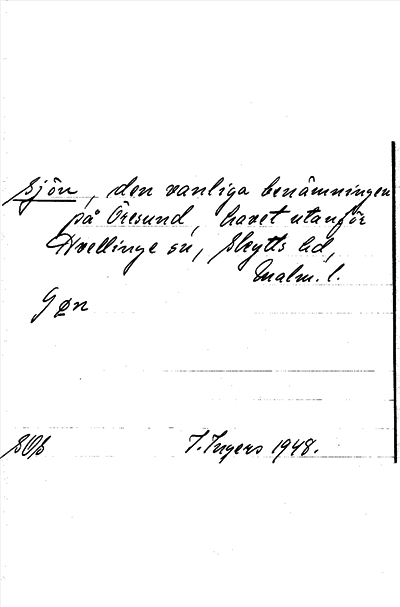 sjön, den vanliga benämningen
på Öresund, havet utanför
Hvellinge sn, Skytts hd,
Malm. l.
Iøn
SOB I. Ingers 1948.